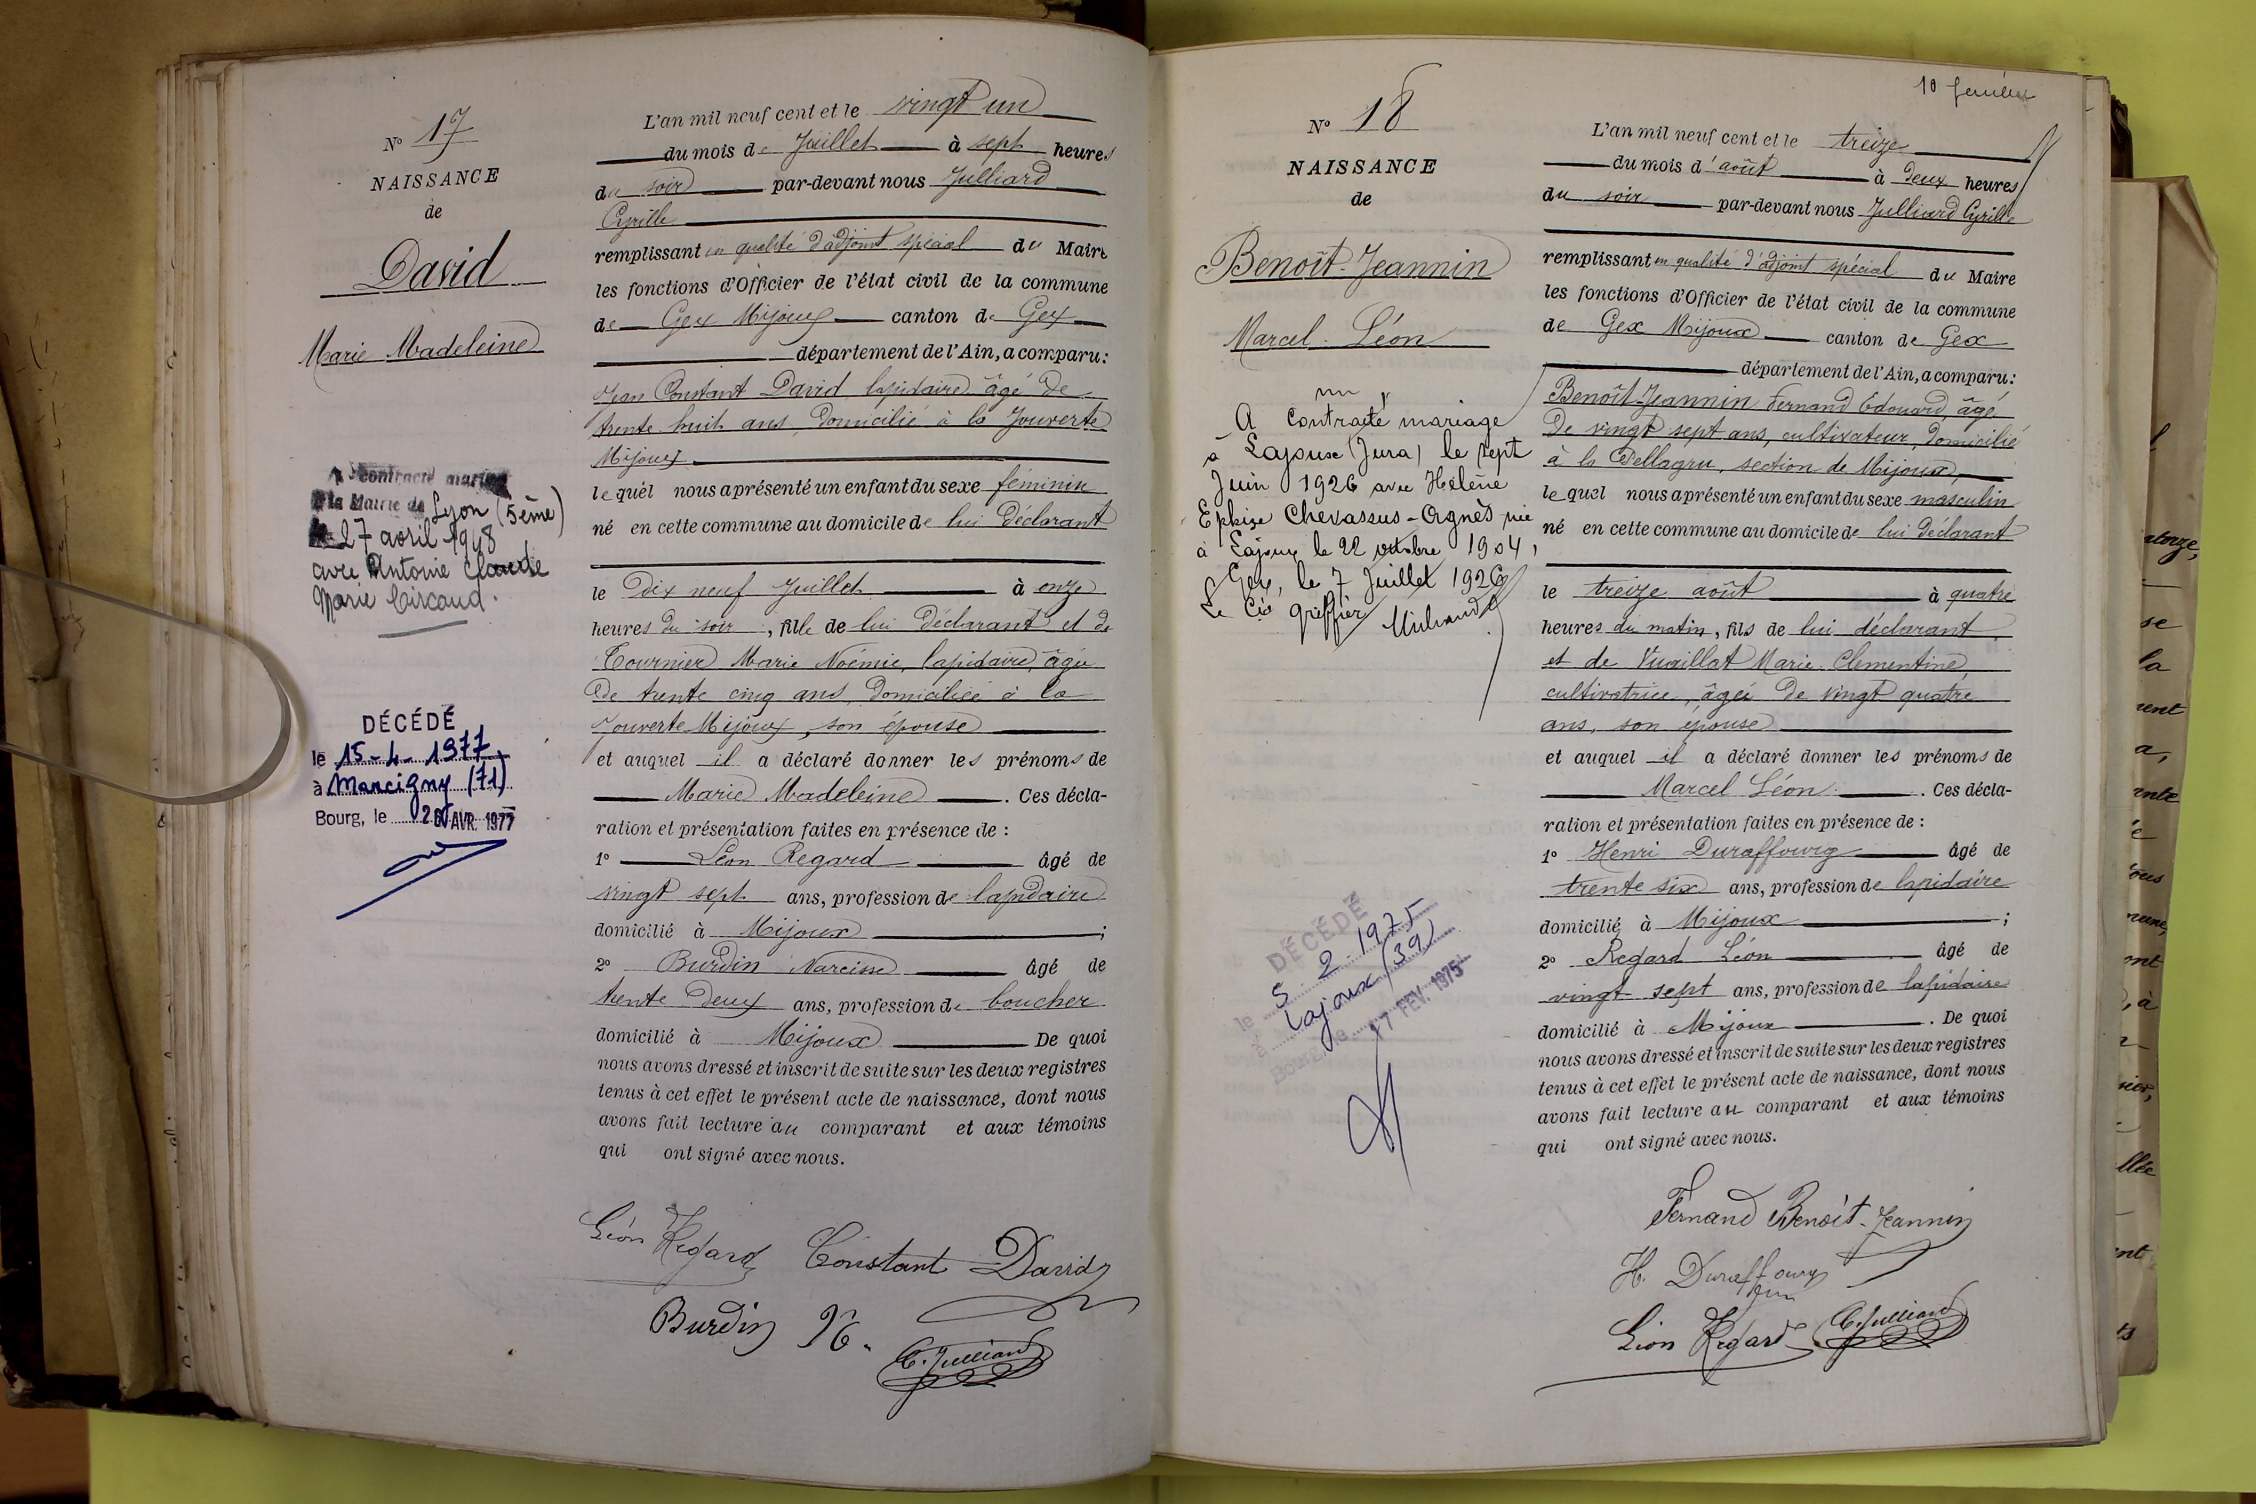 N° 17
NAISSANCE
de
David
Marie Madeleine
A contracté mariage
à la Mairie de Lyon (5ème)
le 27 avril 1948
avec Antoine Claude
Marie Circaud.
DÉCÉDÉ
le 15-4-1977
à Marcigny (71)
Bourg, le 20 AVR. 1977
L'an mil neuf cent et le vingt un
du mois de Juillet à sept heures
du soir par-devant nous Julliard
Cyrille
remplissant en qualité d'adjoint spécial du Maire
les fonctions d'Officier de l'état civil de la commune
de Gex Mijoux canton de Gex
département de l'Ain, a comparu:
Jean Constant David lapidaire âgé de
trente huit ans, domicilié à la
Mijoux
lequel nous a présenté un enfant du sexe féminin
né en cette commune au domicile de lui Déclarant
le Dix neuf Juillet à onze
heures du soir, fille de lui Déclarant et de
Tournier Marie Noémie, lapidaire, âgée
de trente cinq ans, domiciliée à la
Mijoux, son épouse
et auquel il a déclaré donner les prénoms de
Marie Madeleine. Ces décla-
ration et présentation faites en présence de :
1° Léon Regard âgé de
vingt sept ans, profession de lapidaire
domicilié à Mijoux ;
2° Burdin Narcisse âgé de
trente Deux ans, profession de boucher
domicilié à Mijoux De quoi
nous avons dressé et inscrit de suite sur les deux registres
tenus à cet effet le présent acte de naissance, dont nous
avons fait lecture au comparant et aux témoins
qui ont signé avec nous.
Léon Regard Constant David
Burdin N.
C. Julliard
10
N° 18
NAISSANCE
de
Benoît-Jeannin
Marcel Léon
A contracté mariage
à Lajoux (Jura) le sept
Juin 1926 avec Hélène
Chevassus-Agnès née
à Lajoux le 22 octobre 1904,
Gex, le 7 Juillet 1926
Le greffier
DÉCÉDÉ
le 5 2 1975
à Lajoux (39)
Bourg, le 17 FEV. 1975
L'an mil neuf cent et le treize
du mois d'août à deux heures
du soir par-devant nous Julliard Cyrille
remplissant en qualité d'adjoint spécial du Maire
les fonctions d'Officier de l'état civil de la commune
de Gex Mijoux canton de Gex
département de l'Ain, a comparu:
Benoît-Jeannin Fernand Edouard, âgé
De vingt sept ans, cultivateur, domicilié
à la section de Mijoux,
lequel nous a présenté un enfant du sexe masculin
né en cette commune au domicile de lui déclarant
le treize août à quatre
heures du matin, fils de lui déclarant
et de Vuaillat Marie Clementine
cultivatrice, âgée de vingt quatre
ans, son épouse
et auquel il a déclaré donner les prénoms de
Marcel Léon. Ces décla-
ration et présentation faites en présence de :
1° Henri Duraffourg âgé de
trente six ans, profession de lapidaire
domicilié à Mijoux ;
2° Regard Léon âgé de
vingt sept ans, profession de lapidaire
domicilié à Mijoux. De quoi
nous avons dressé et inscrit de suite sur les deux registres
tenus à cet effet le présent acte de naissance, dont nous
avons fait lecture au comparant et aux témoins
qui ont signé avec nous.
Fernand Benoît-Jeannin
H. Duraffourg
Léon Regard C. Julliard